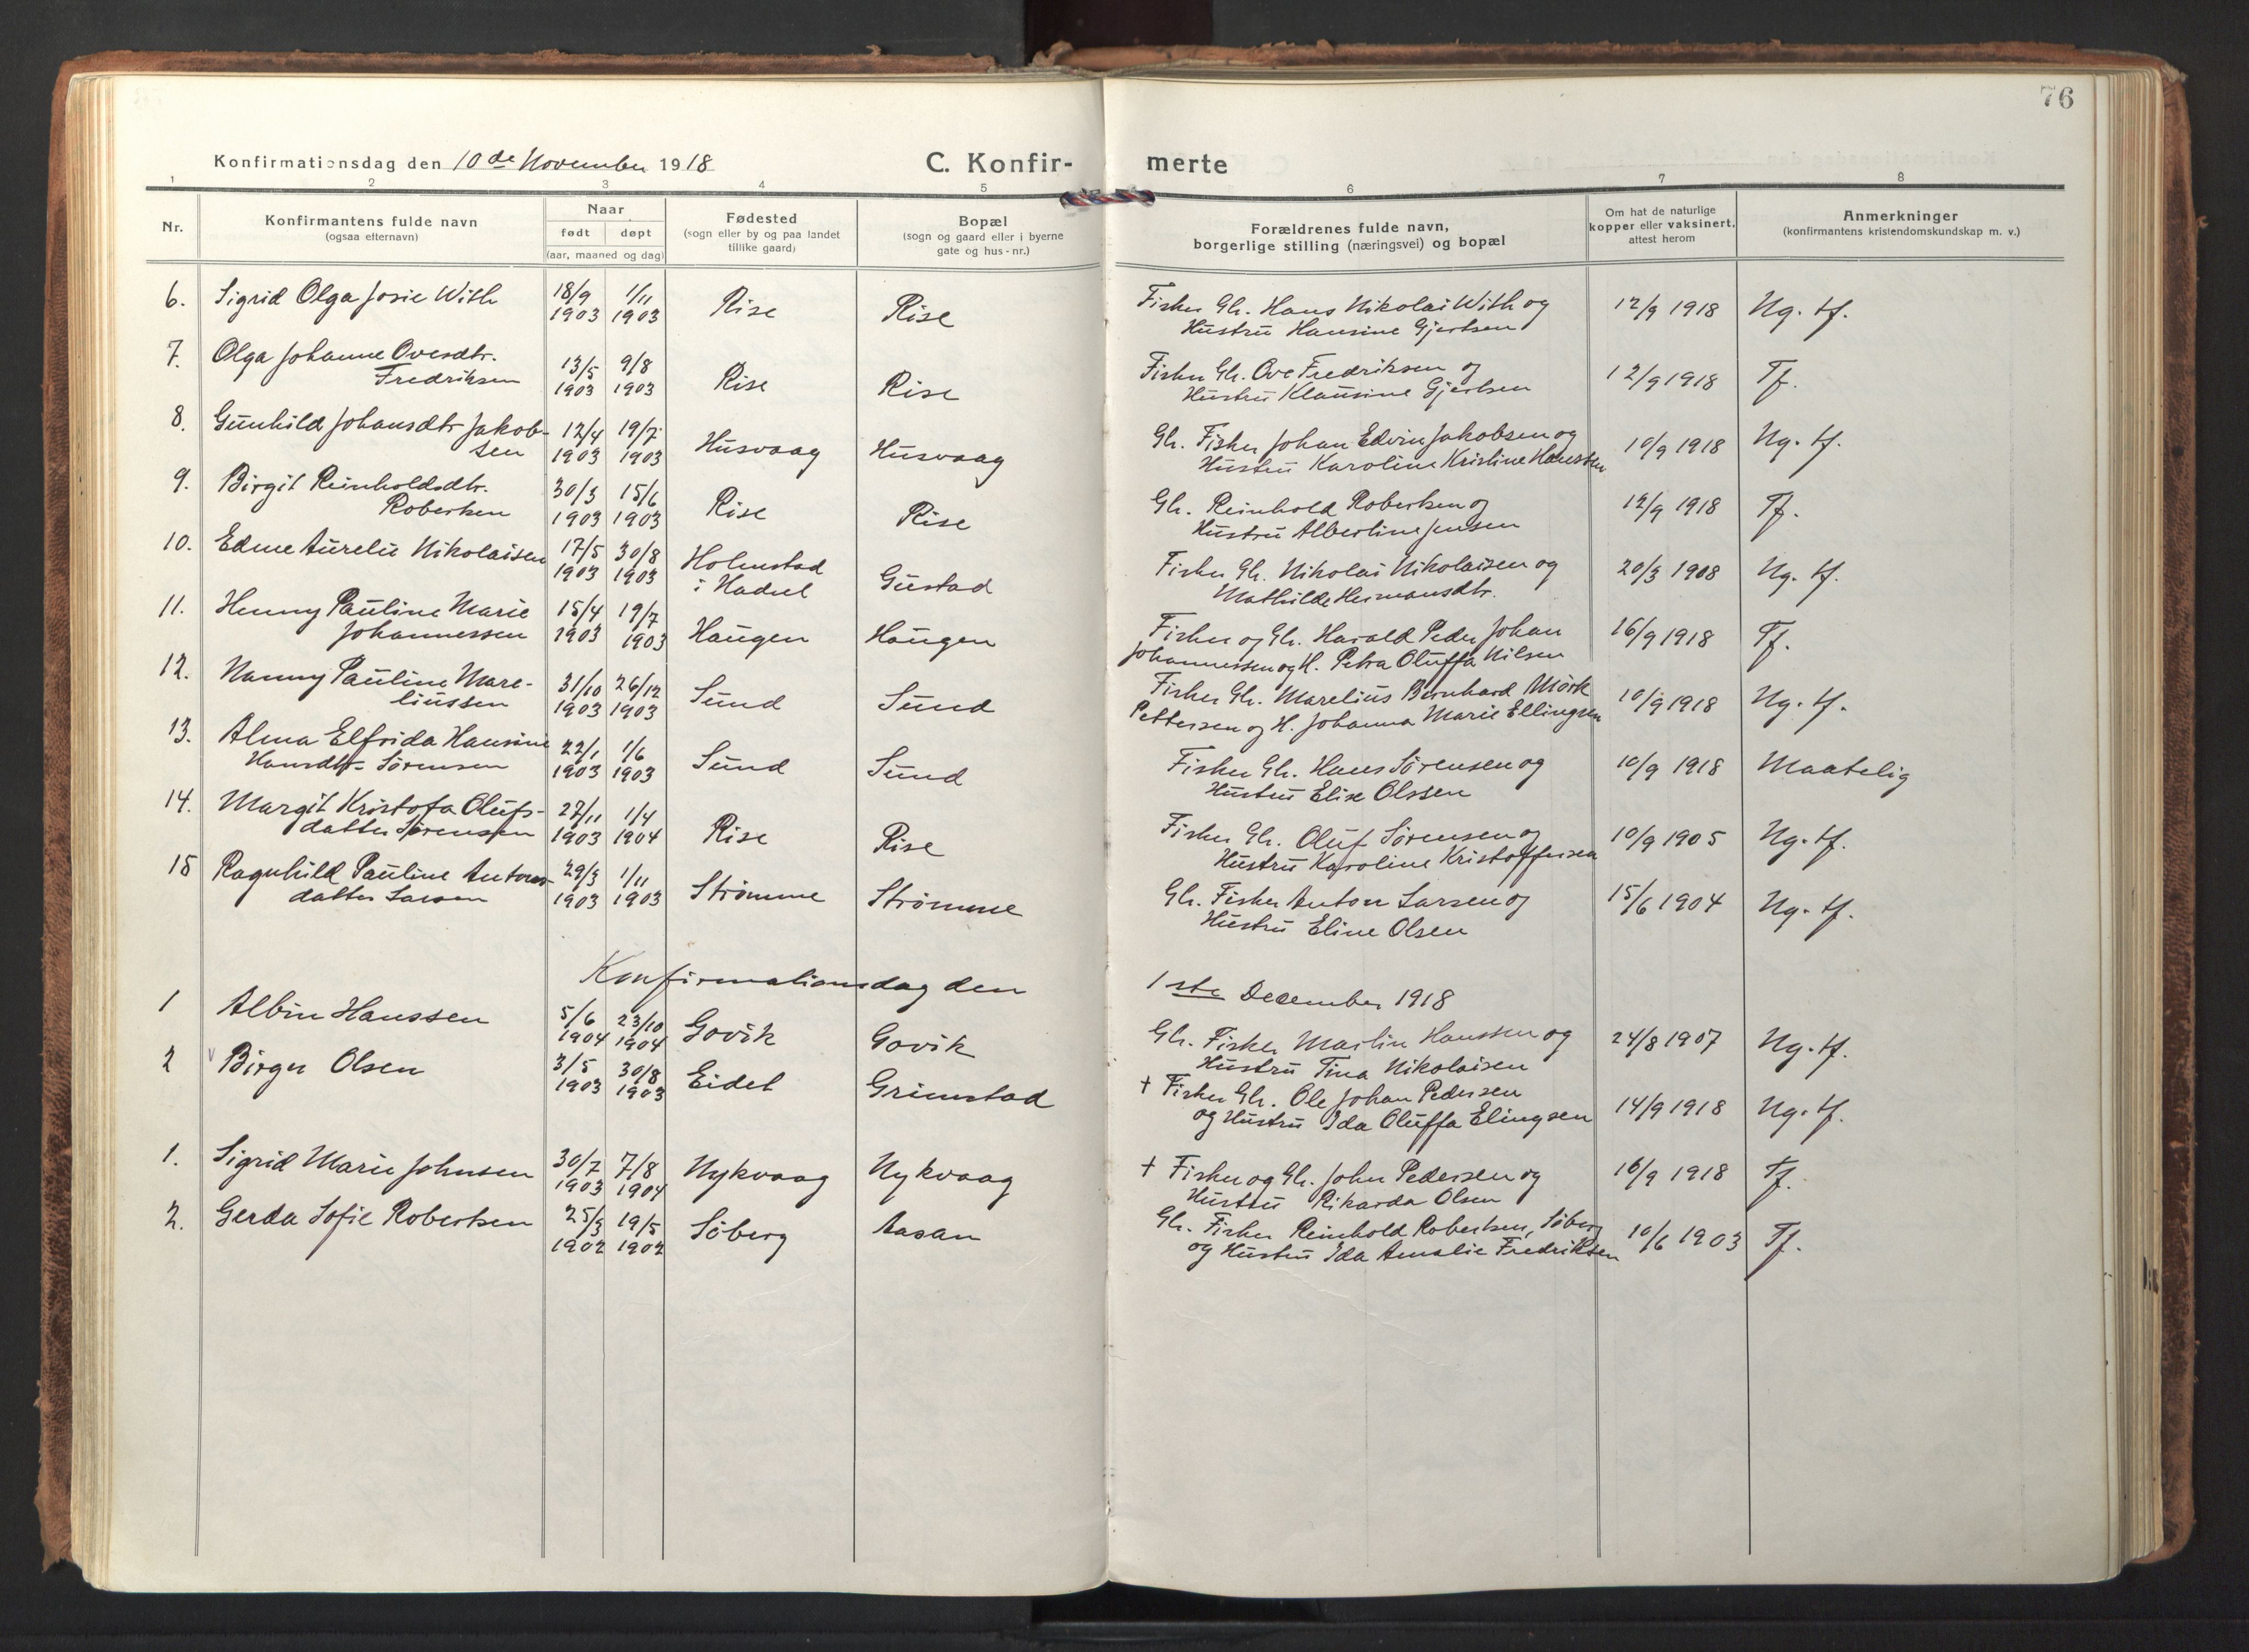 76
Konfirmationsdag den 10de November 1918
C. Konfir-
merte
1 2 3 4 5 6 7 8
Nr.
Konfirmantens fulde navn
(ogsaa efternavn)
Naar
født døpt
(aar, maaned og dag)
Fødested
(sogn eller by og paa landet
tillike gaard)
Bopæl
(sogn og gaard eller i byerne
gate og hus-nr.)
Forældrenes fulde navn,
borgerlige stilling (næringsvei) og bopæl
Om hat de naturlige
kopper eller vaksinert,
attest herom
Anmerkninger
(konfirmantens kristendomskundskap m. v.)
6. Sigrid Olga Josie With 18/9 1903 1/11 1903 Rise Rise Fisker Gb. Hans Nikolai With og 12/9 1918 Ng. tf.
Hustru Hansine Gjertsen
7. Olga Johanne Ovesdtr. 13/5 1903 9/8 1903 Rise Rise Fisker Gb. Ove Fredriksen og 12/9 1918 Tf.
Fredriksen Hustru Klausine Gjertsen
8. Gunhild Johansdtr Jakob- 12/4 1903 19/7 1903 Husvaag Husvaag Gb. Fisker Johan Edvin Jakobsen og 10/9 1918 Ng. tf.
sen Hustru Karoline Kristine Hansten
9. Birgit Reinholdsdtr. 30/3 1903 15/6 1903 Rise Rise Gb. Reinhold Robertsen og 12/9 1918 Tf.
Robertsen Hustru Albertine Jensen
10. Edine Aurelie Nikolaisen 17/5 1903 30/8 1903 Holmstad Gustad Fisker Gb. Nikolai Nikolaisen og 20/3 1908 Ng. tf.
i Hadsel Mathilde Hermansdtr.
11. Henny Pauline Marie 15/4 1903 19/7 1903 Haugen Haugen Fisker og Gb. Harald Peder Johan 16/9 1918 Tf.
Johannessen Johannessen og H. Petra Oluffa Nilsen
12. Nanny Pauline Mare- 31/10 1903 26/12 1903 Sund Sund Fisker Gb. Marelius Bernhard Mørk 10/9 1918 Ng. tf.
liussen Pettersen og H. Johanna Marie Ellingsen
13. Alma Elfrida Hansine 22/1 1903 1/6 1903 Sund Sund Fisker Gb. Hans Sørensen og 10/9 1918 Maatelig
Hansdtr. Sørensen Hustru Elise Olssen
14. Margit Kristofa Olufs- 27/11 1903 1/4 1904 Rise Rise Fisker Gb. Oluf Sørensen og 10/9 1905 Ng. tf.
datter Sørensen Hustru Karoline Kristoffersen
15 Ragnhild Pauline Antons- 29/3 1903 1/11 1903 Strømme Strømme Gb. Fisker Anton Larsen og 15/6 1904 Ng. tf.
datter Larsen Hustru Eline Olsen
Konfirmationsdag den 1ste December 1918
1 Albin Hanssen 5/6 1904 23/10 1904 Govik Govik Gb. Fisker Martin Hanssen og 24/8 1907 Ng. tf.
Hustru Tina Nikolaisen
2 v Birger Olsen 3/5 1903 30/8 1903 Eidet Grimstad + Fisker Gb. Ole Johan Pedersen 14/9 1918 Ng. tf.
og Hustru Ida Oluffa Elingsen
1. Sigrid Marie Johnsen 30/7 1903 7/8 1904 Nykvaag Nykvaag + Fisker og Gb. John Pedersen og 16/9 1918 Tf.
Hustru Rikarda Olsen
2. Gerda Sofie Robertsen 25/3 1902 19/5 1902 Søberg Aasan Gb. Fisker Reinhold Robertsen, Søberg 10/6 1903 Tf.
og Hustru Ida Amalie Fredriksen